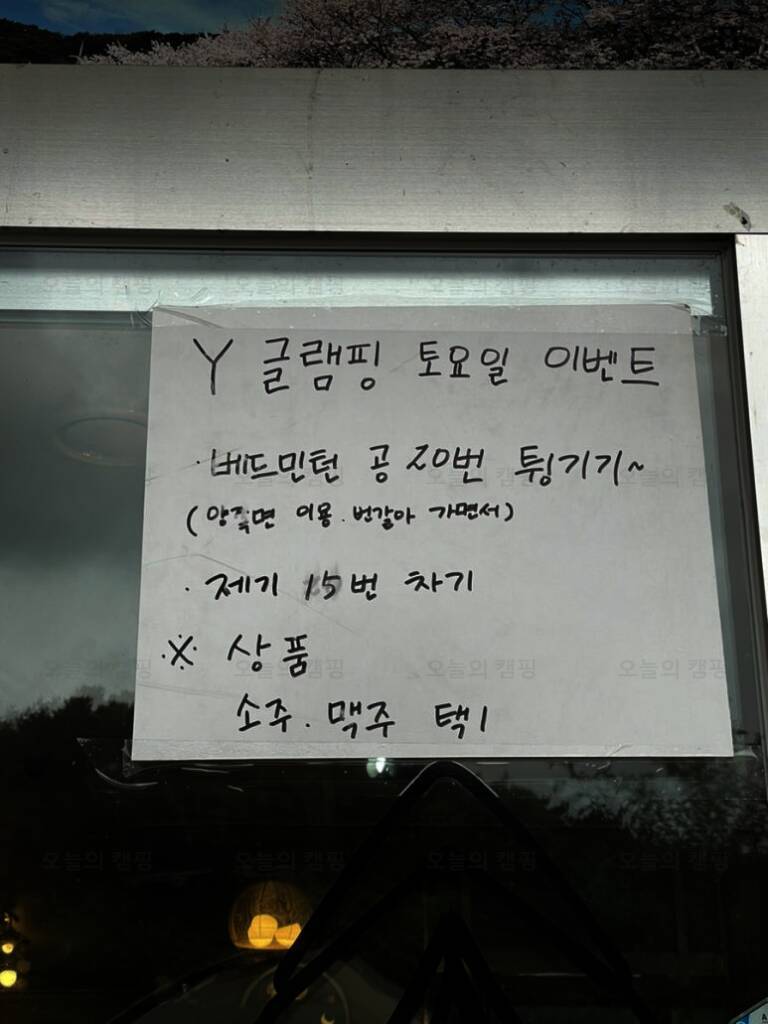 Y 글램핑 토요일 이벤트
· 베드민턴 공 20번 튕기기~
(양쪽면 이용. 번갈아 가면서)
· 제기 15번 차기
※ 상품
소주. 맥주 택1
오늘의 캠핑 오늘의 캠핑 오늘의 캠핑 오늘의 캠핑
오늘의 캠핑 오늘의 캠핑 오늘의 캠핑 오늘의 캠핑
오늘의 캠핑 오늘의 캠핑 오늘의 캠핑 오늘의 캠핑